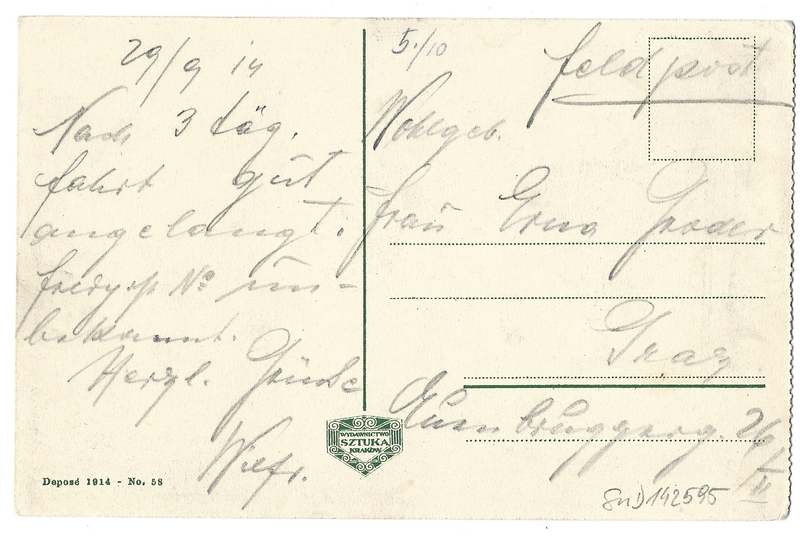 29/9 14
Nach 3 täg.
fahrt gut
angelangt.
No un-
bekannt.
Herzl. Grüße
Wilfr.
5./10
Feldpost
Wohlgeb.
Frau Erna
Graz
Auenbruggerg.
WYDAWNICTWO
SZTUKA
KRAKÓW
Deposé 1914 - No. 58
142595